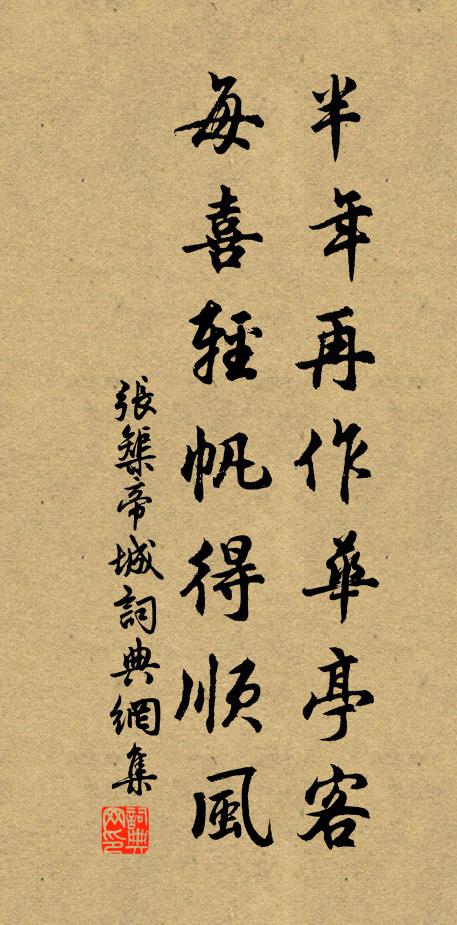 半年再作華亭客
每喜輕帆得順風
張榘帝城詞典網集
詞典
网印